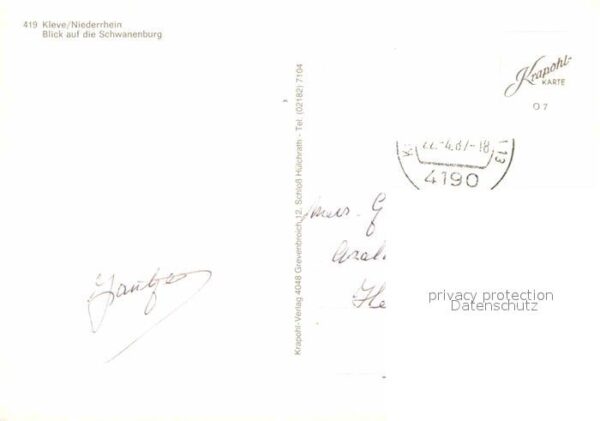 419 Kleve/Niederrhein
Blick auf die Schwanenburg
Krapohl-Verlag 4048 Grevenbroich 12, Schloß Hülchrath - Tel. (02182) 7104
Krapohl-
KARTE
07
22.-4.87-18
4190
privacy protection
Datenschutz